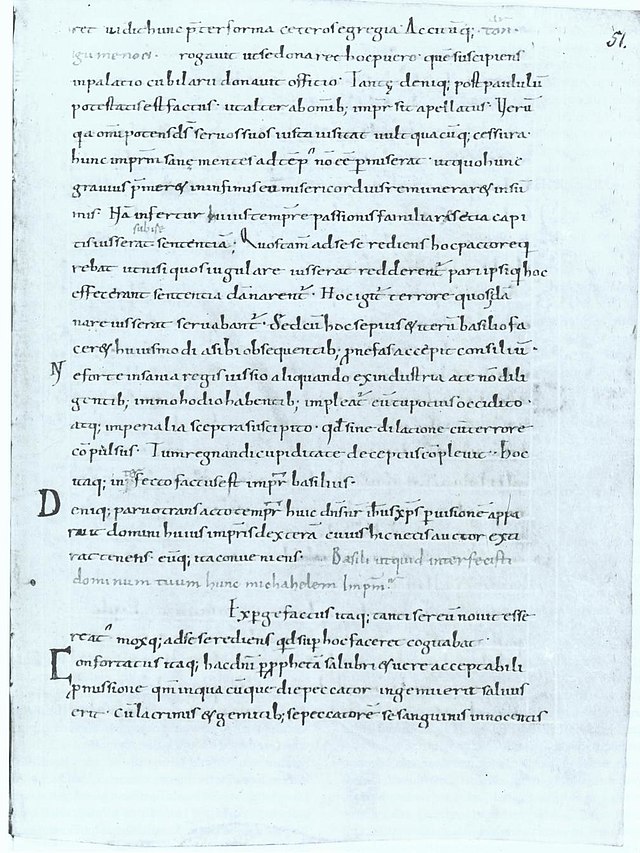 51.
ret uidit hunc p̄ter forma ceteros egregia. Accitūq;
gumenos. rogauit ut se donaret hoc puero. que suscipiens
in palatio cubilarii donauit officio. Tantę deniq; post paululū
potestatis est factus. ut alter ab omīb; impr̄ sit apellatus. Uerū
qa omīpotens ds̄ seruos suos iustū uisitat uult quacūq; cessura
hunc imprm̄ sanę mentes ad tēp' nō eē p̄miserat. ut quo hunc
grauius p̄meret in infimis eū misericordius remuneraret in sūm
mis. Hā infertur huius tempre passionis familiares etia capi
subire
tis iusserat sententiā; Quos tam ad se se rediens hoc pacto req
rebat ut nisi quos iugulare iusserat redderent̄ pari ipsi q hoc
effecerant sententia dānarent̄. Hoc igit̄ terrore quos dā
nare iusserat seruabant̄. Sed cū hoc sepius et iterū basilio fa
ceret huiusmodi a sibi obsequentib; p̄nefas accepit consiliū.
N e forte insania regis iussio aliquando ex industria a te nō dili
gentib; immo hodio habentib; impleat̄ eū tu potius occidito.
atq; imperialia sceptra suscipito. qd̄ sine dilatione cū terrore
cōpulsus. Tum regnandi cupiditate deceptus cōpleuit. Hoc
itaq; interfecto factus est impr̄ basilius.
D eniq; paruo transacto tempr̄ huic dn̄s nr̄ ih̄us xp̄s p uisionē appa
ruit domini huius impris dexterā cuius hic necis auctor exti
rat tenens. eūq; ita conueniens. Basili ut quid interfecisti
dominum tuum hunc michahelem Impm̄
Exp̄gefactus itaq; tanti se reū nouit esse
reat'. moxq; ad se se rediens qd̄ sup hoc faceret cogitabat.
C onfortatus itaq; hac dn̄i p̄ p̄phetā salubri et uere acceptabili
p̄missione qm̄ in quacūque die peccator ingemuerit saluus
erit. cū lacrimis et gemitib; se peccatorē se sanguinis innocentis